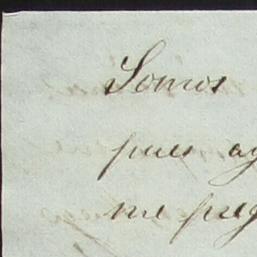 Somos
pues ag
me preg